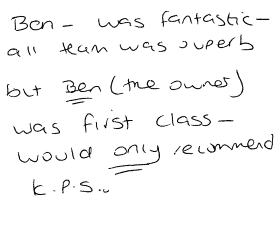 Ben - was fantastic -
all team was superb
but Ben (the owner)
was first class -
would only recommend
K.P.S..